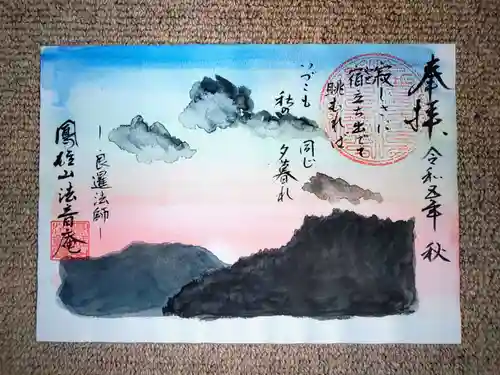 奉拝
令和五年 秋
寂しさに
宿を立ち出でて
眺むれば
いづこも
秋の
同じ
夕暮れ
ー良暹法師ー
法音庵